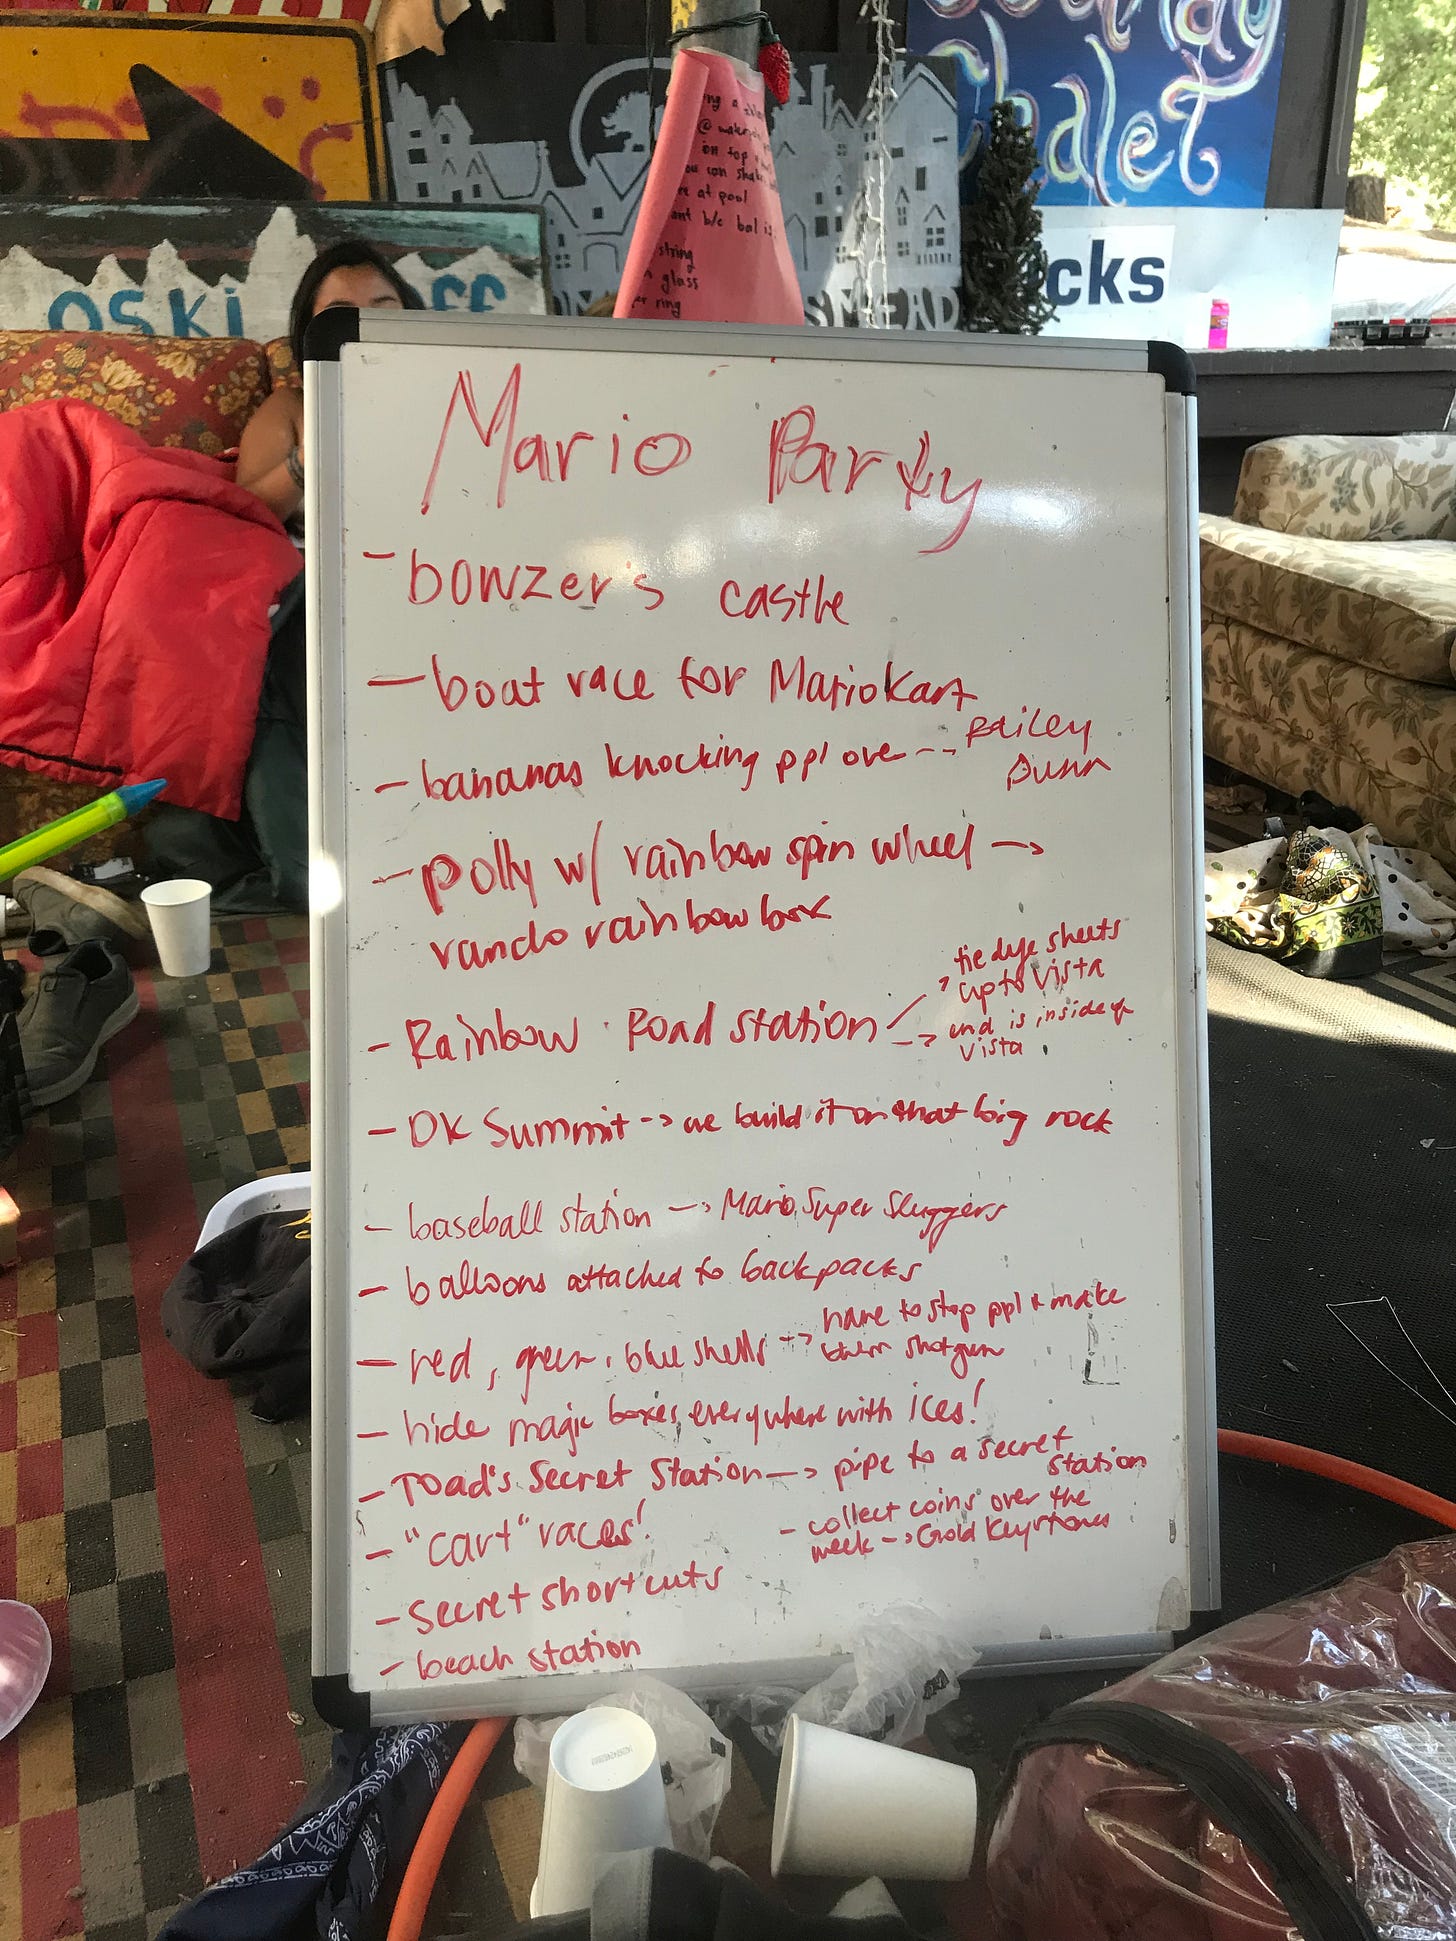 Chalet
cks
OSKI
SMEAD
@
on top
ou can
re at pool
ant b/c bal is
string
glass
er ring
Mario Party
- bowzer's castle
- boat race for MarioKart
- bananas knocking ppl over -- Bailey Dunn
- polly w/ rainbow spin wheel →
rando rainbow book
- Rainbow Road station → tie dye sheets up to Vista
→ end is inside of Vista
- DK Summit → we build it on that big rock
- baseball station → Mario Super Sluggers
- balloons attached to backpacks
- red, green, blue shells → have to stop ppl & make them shotgun
- hide magic boxes everywhere with ices!
- Toad's Secret Station → pipe to a secret station
- "cart" races!
- collect coins over the week → Gold Keystones
- Secret shortcuts
- beach station